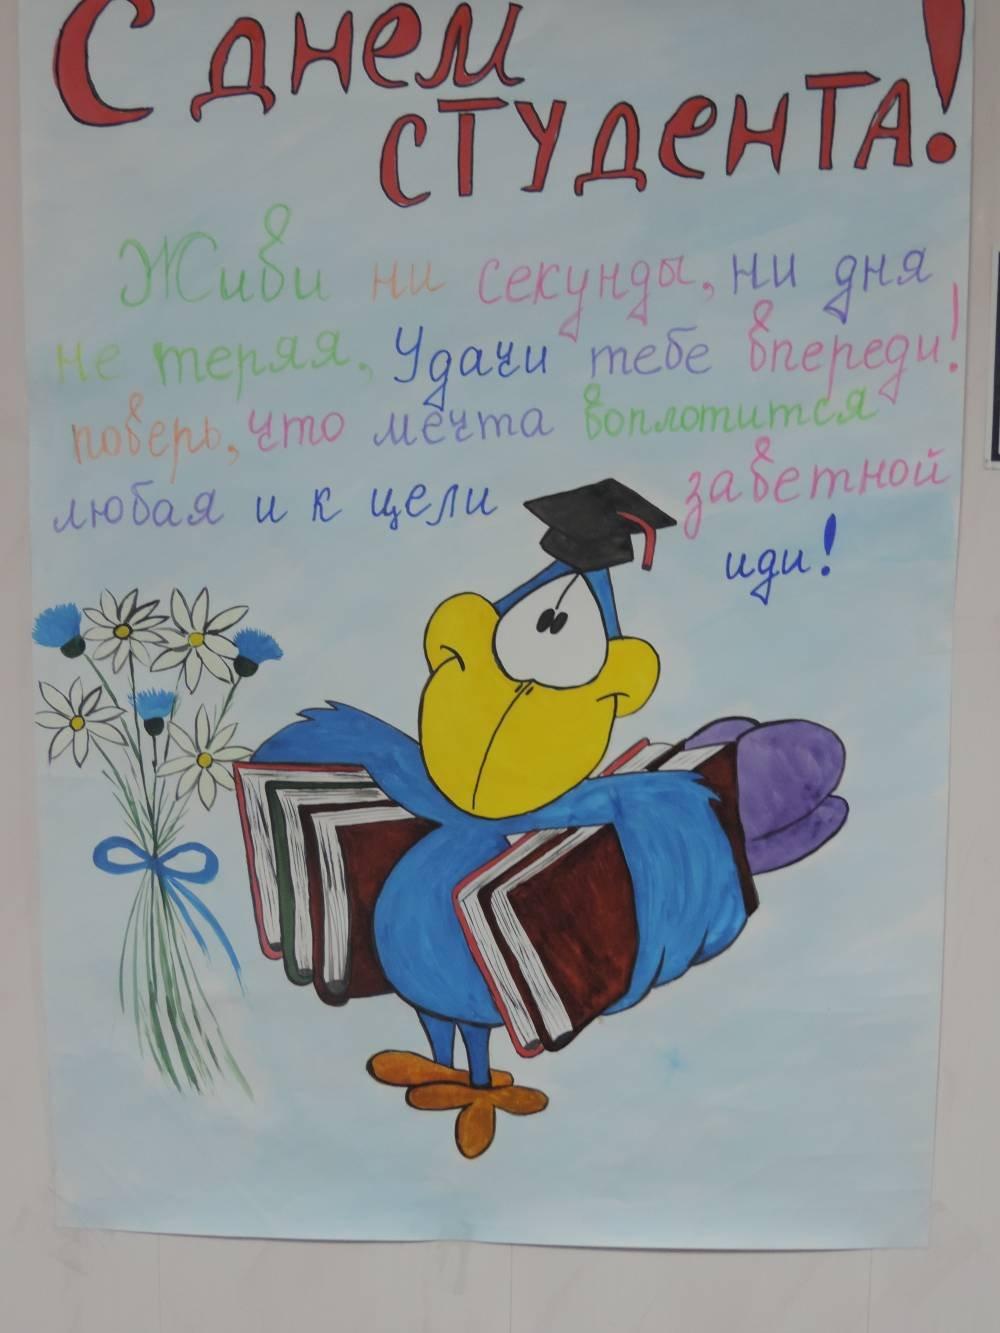 С днем
студента!
Живи ни секунды, ни дня
не теряя, Удачи тебе впереди!
поверь, что мечта воплотится
любая и к цели заветной
иди!